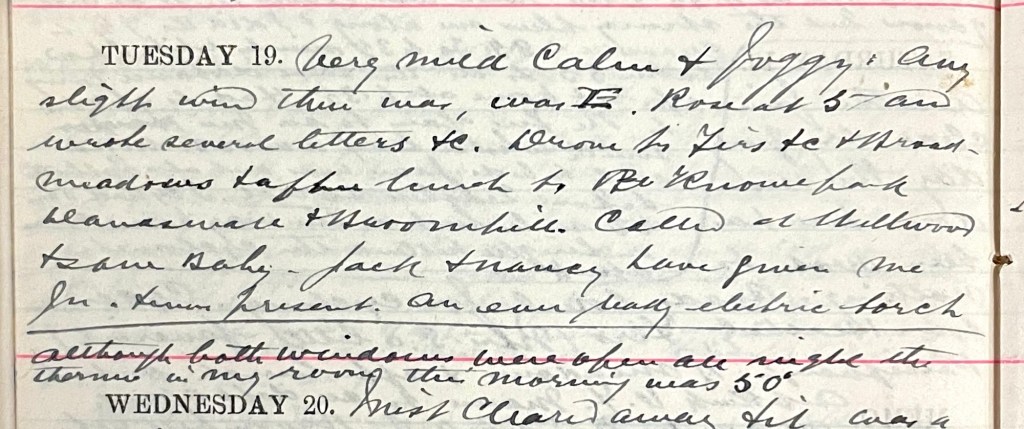 TUESDAY 19. Very mild Calm & foggy. Any
slight wind there was, was E. Rose at 5 and
wrote several letters &c. Drove to Firs &c & Broad-
meadows & after lunch to Knowepark
& Broomhill. Called at Wellwood
& saw Baby. Jack & Nancy have given me
present. An ever ready electric torch
although both windows were open all night the
thermr in my room this morning was 50°
WEDNESDAY 20. Mist Cleared away & it was a